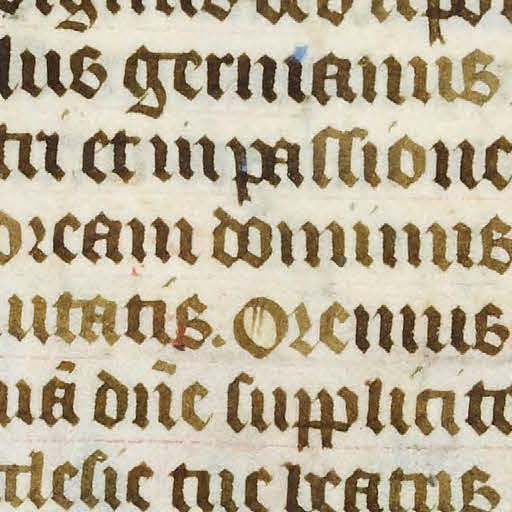 lus germanus
tri et in passione
orcam dominus
uitatis. Oremus
uã dñe supplici
cclesie tue beatus